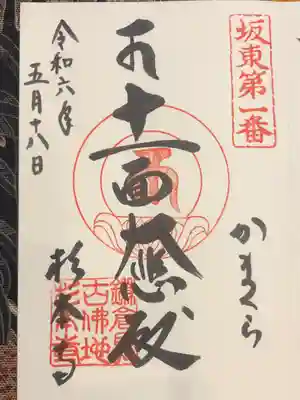 坂東第一番
かまくら
十一面大悲殿
鎌倉最
古佛地
杉本寺
杉本寺
令和六年
五月十八日